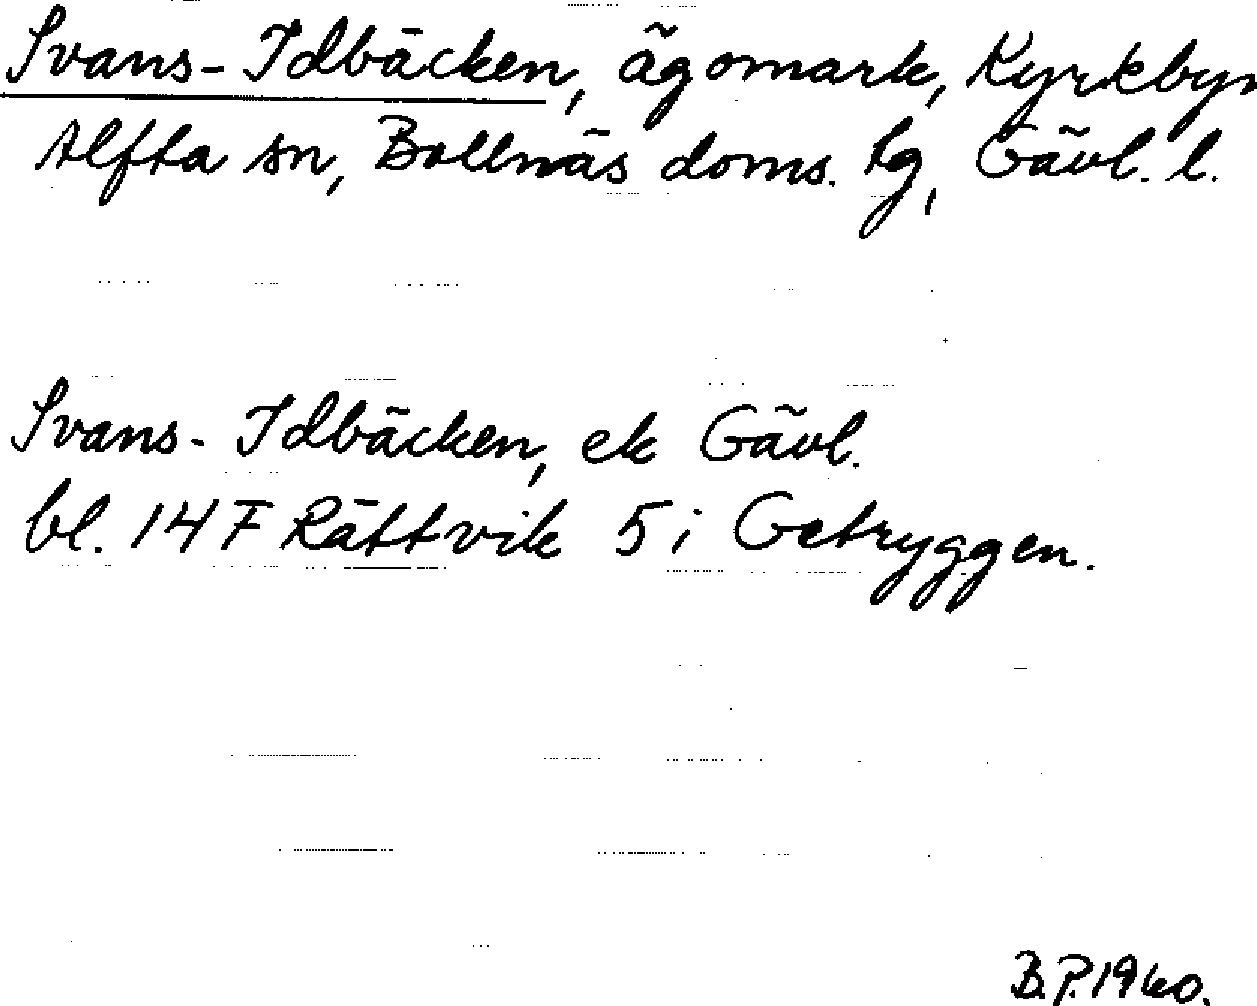 Svans-Idbäcken, ägomark, Kyrkbyn
Alfta sn, Bollnäs doms. tg, Gävl. l.
Svans-Idbäcken, ek Gävl.
bl. 14 F Rättvik 5 i Getryggen.
B.P. 1960.